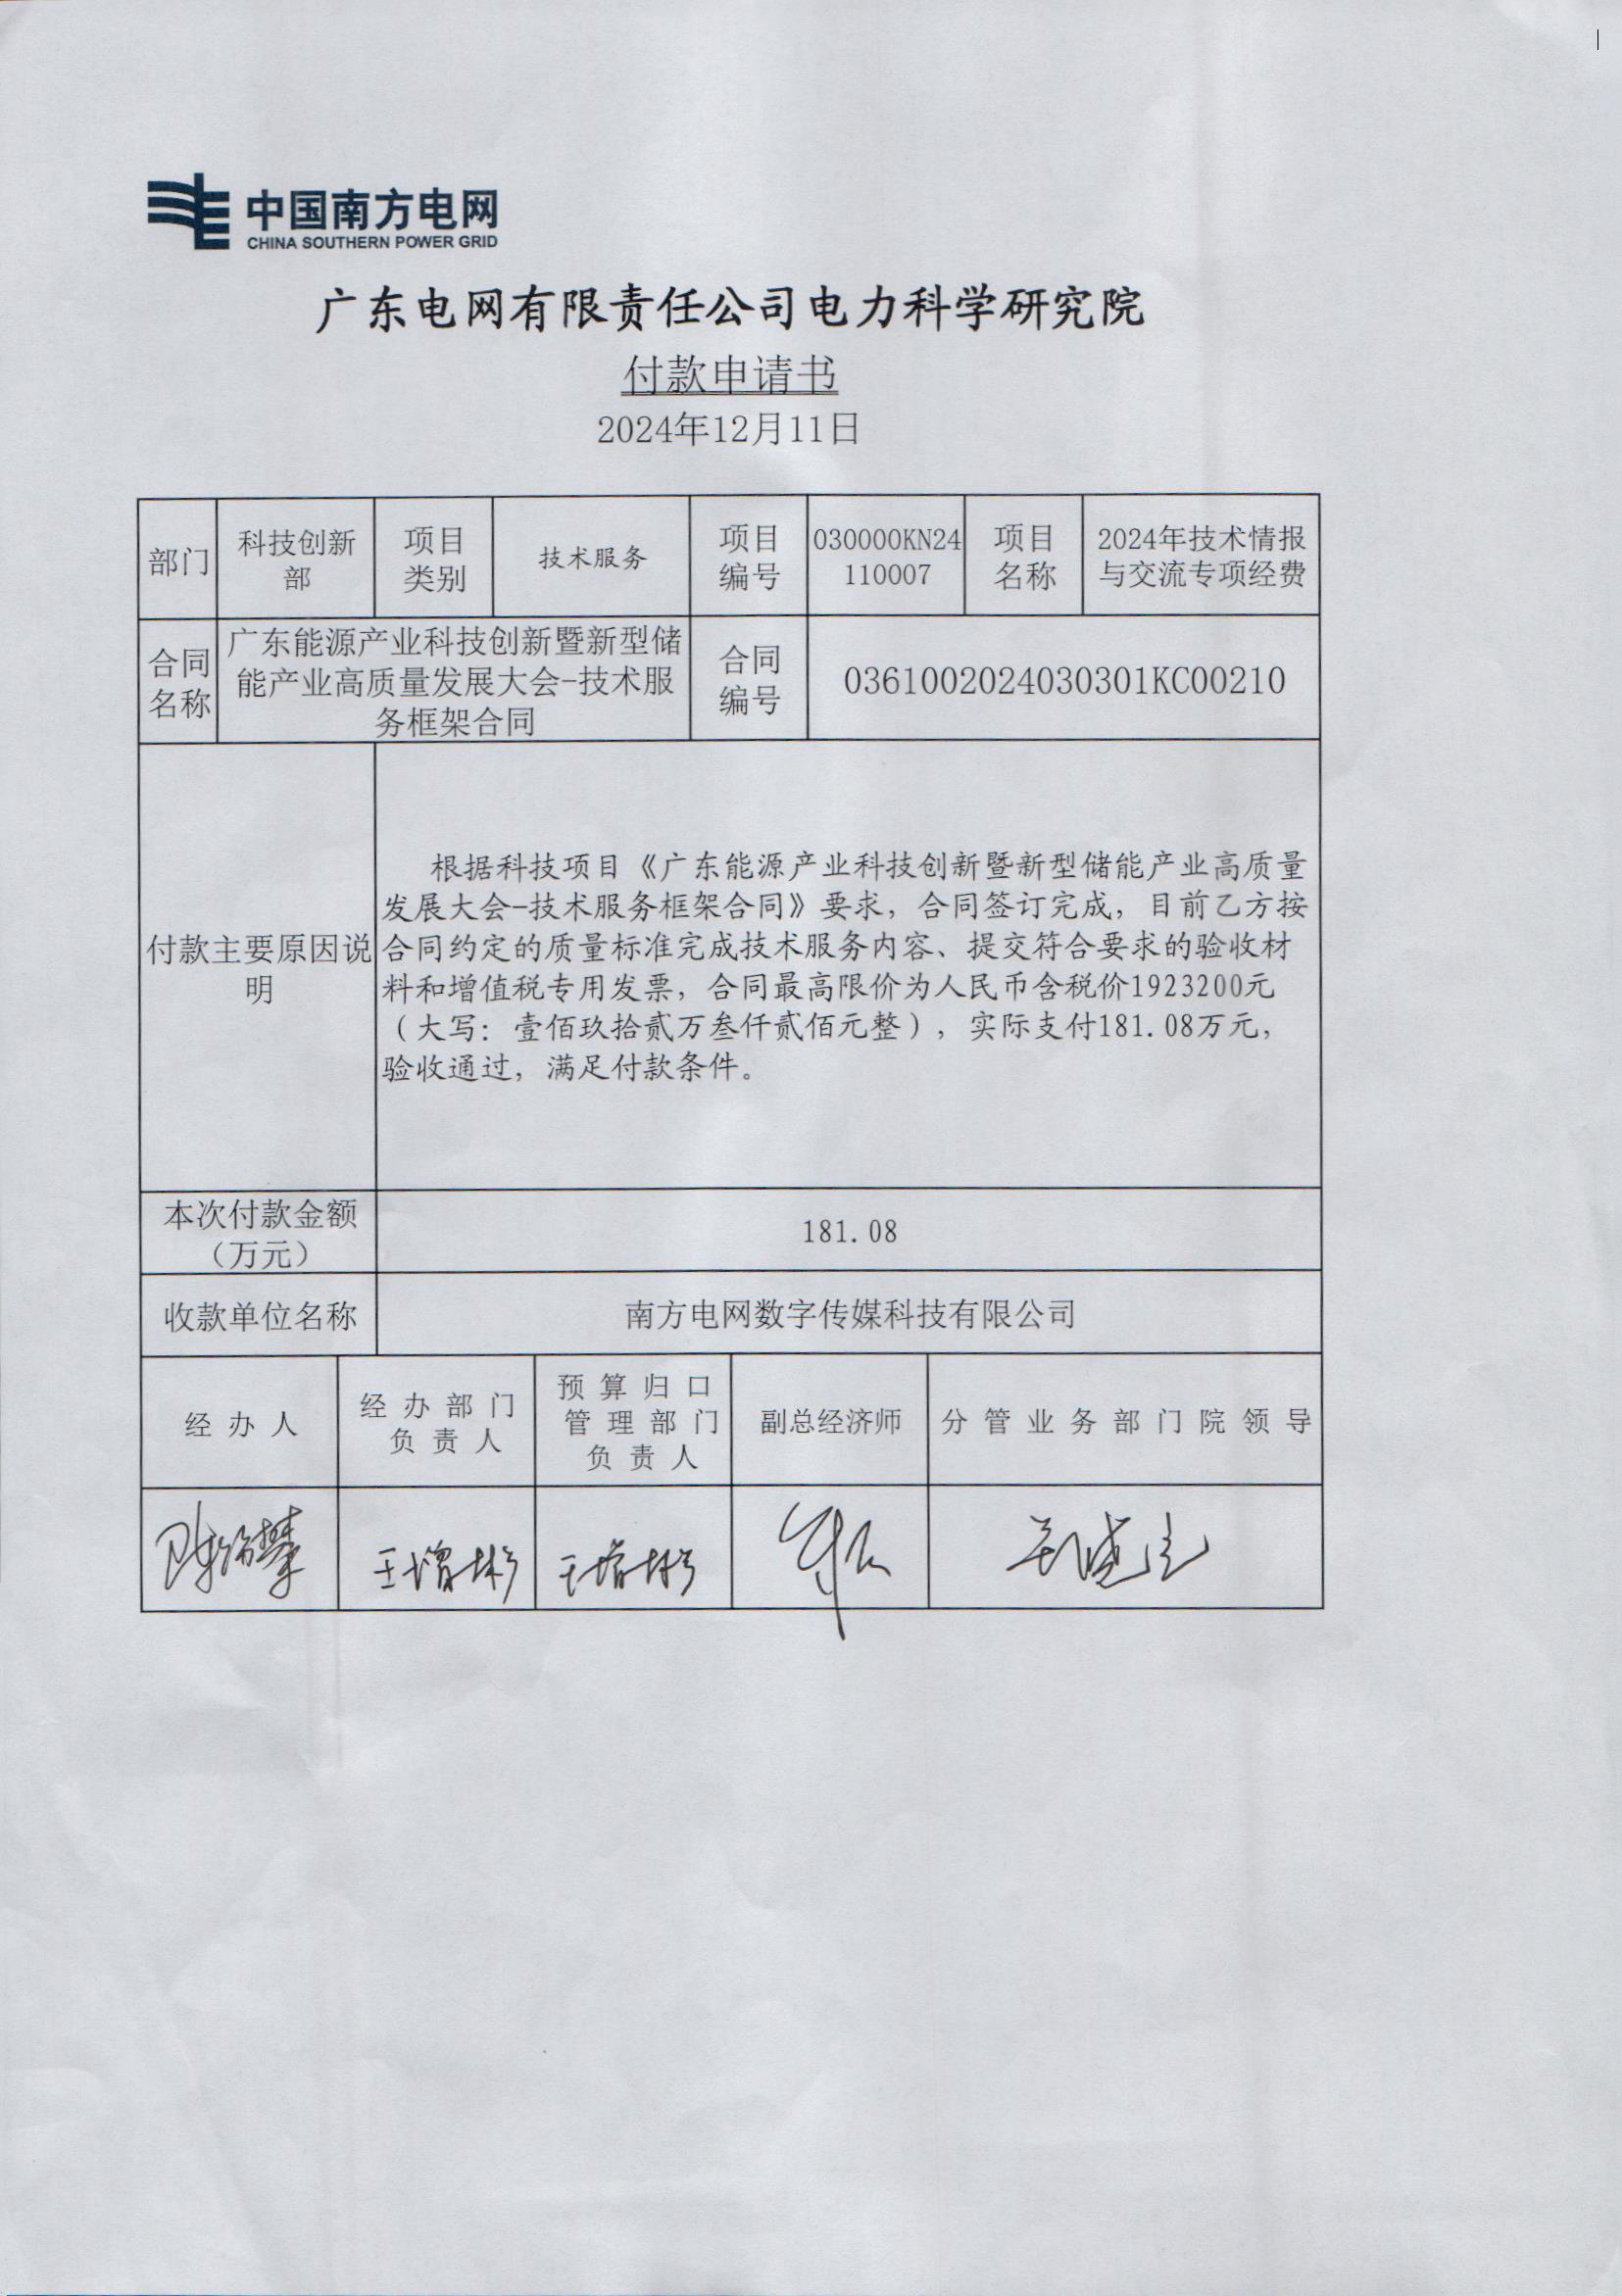 中国南方电网
CHINA SOUTHERN POWER GRID
广东电网有限责任公司电力科学研究院
付款申请书
2024年12月11日
部门
科技创新
部
项目
类别
技术服务
项目
编号
030000KN24
110007
项目
名称
2024年技术情报
与交流专项经费
合同
名称
广东能源产业科技创新暨新型储
能产业高质量发展大会-技术服
务框架合同
合同
编号
0361002024030301KC00210
付款主要原因说
明
根据科技项目《广东能源产业科技创新暨新型储能产业高质量
发展大会-技术服务框架合同》要求，合同签订完成，目前乙方按
合同约定的质量标准完成技术服务内容、提交符合要求的验收材
料和增值税专用发票，合同最高限价为人民币含税价1923200元
（大写：壹佰玖拾贰万叁仟贰佰元整），实际支付181.08万元，
验收通过，满足付款条件。
本次付款金额
（万元）
181.08
收款单位名称
南方电网数字传媒科技有限公司
经办人
经办部门
负责人
预算归口
管理部门
负责人
副总经济师
分管业务部门院领导
王增彬
王增彬